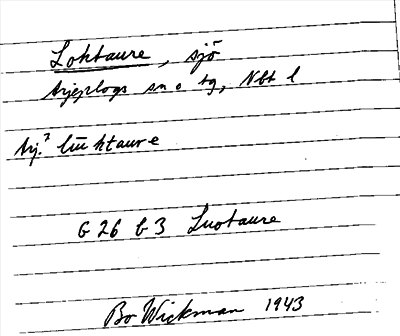 Lohtaure, sjö
Arjeplogs sn o tg, Nbt l
Arj.² lūhtaure
G 26 b 3 Luotaure
Bo Wickman 1943